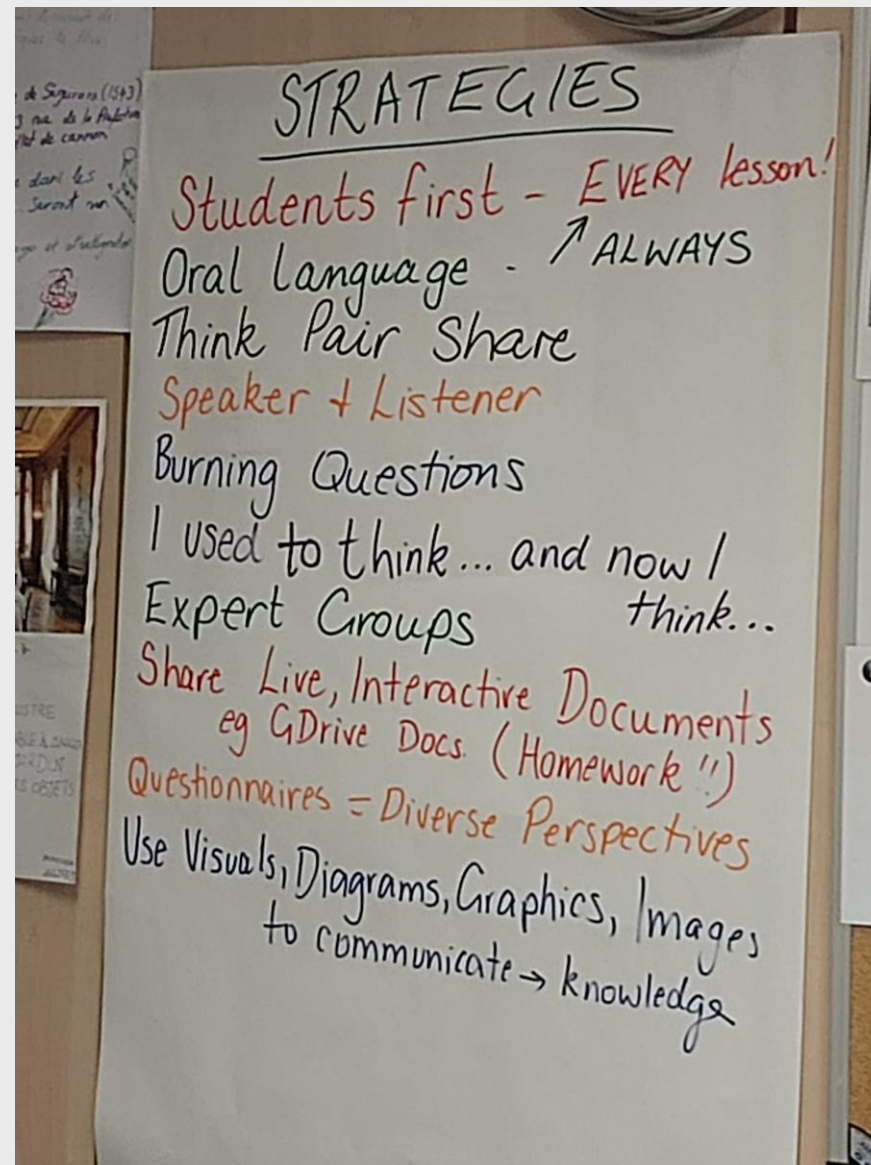 de Segurana (1543)
rue de la
de canon
dans les
Seront un
STRATEGIES
Students first - EVERY lesson!
Oral language - ↗ ALWAYS
Think Pair Share
Speaker + Listener
Burning Questions
I used to think... and now I
think...
Expert Groups
Share Live, Interactive Documents
eg GDrive Docs. (Homework!!)
Questionnaires = Diverse Perspectives
Use Visuals, Diagrams, Graphics, Images
to communicate → knowledge
OBJETS